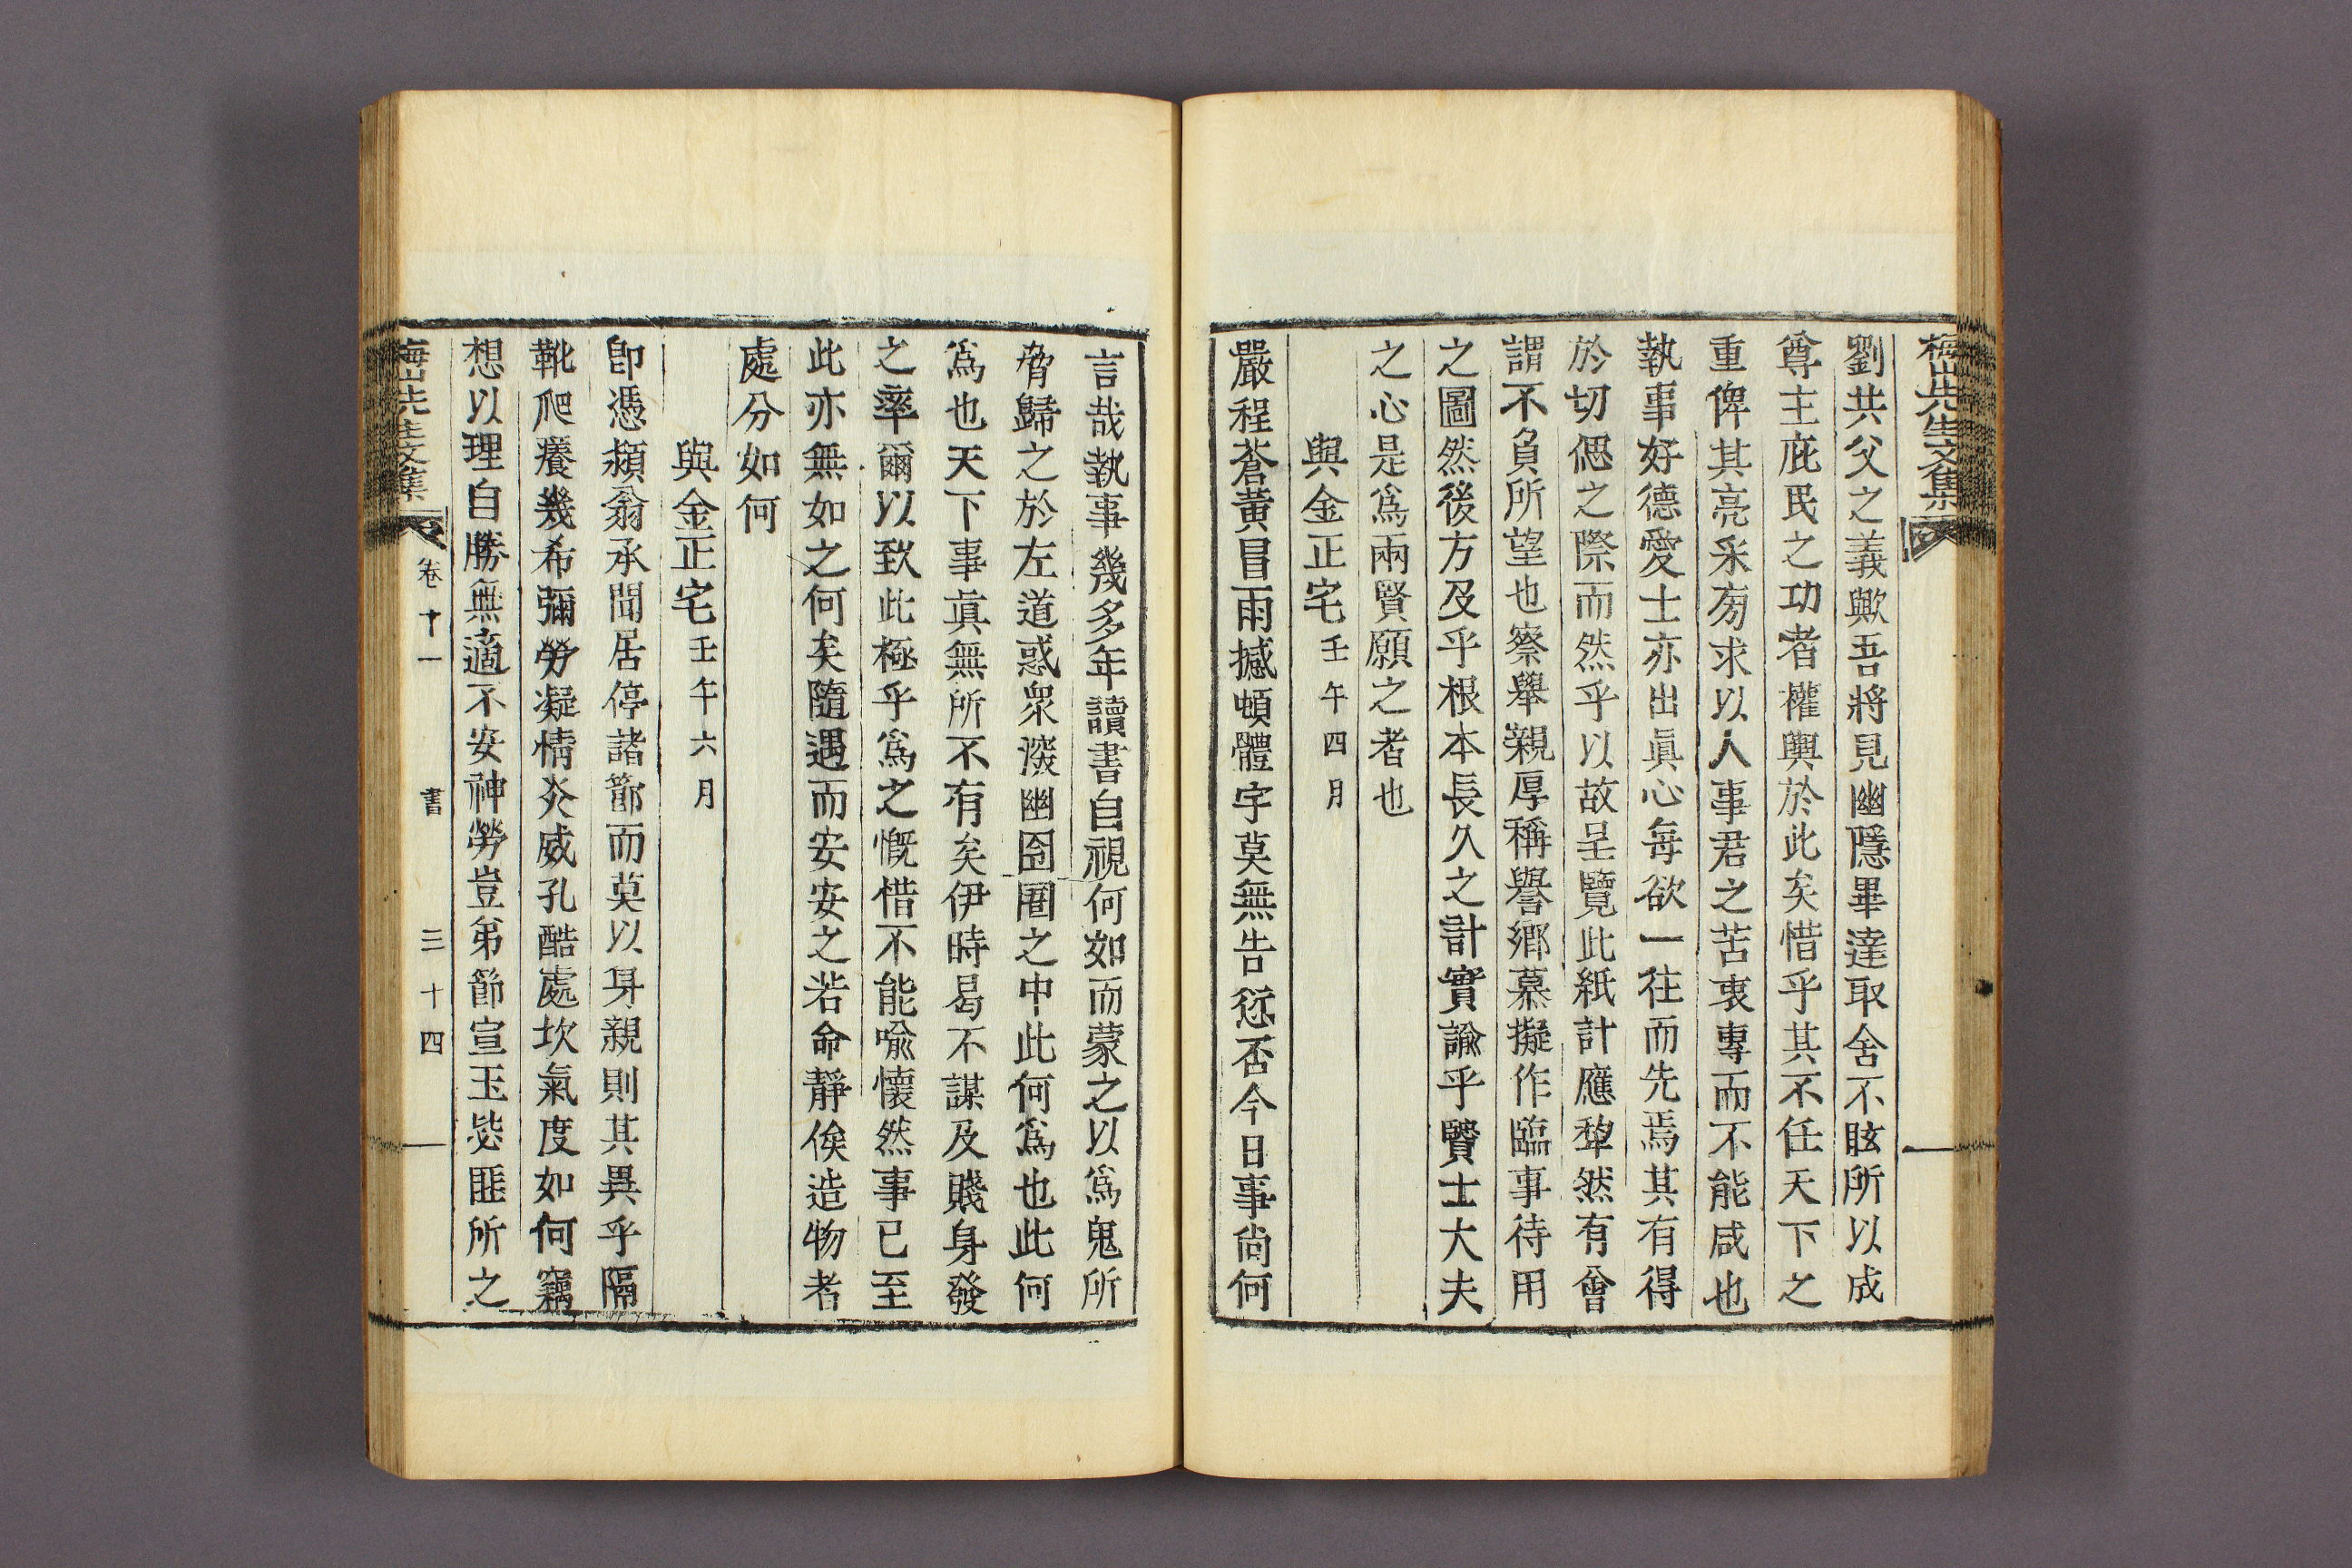 梅山先生文集
劉共父之義歟吾將見幽隱畢達取舍不眩所以成
尊主庇民之功者權輿於此矣惜乎其不任天下之
重俾其亮采旁求以人事君之苦衷專而不能咸也
執事好德愛士亦出眞心每欲一往而先焉其有得
於切偲之際而然乎以故呈覽此紙計應犂然有會
謂不負所望也察擧親厚稱譽鄕慕擬作臨事待用
之圖然後方及乎根本長久之計實諭乎賢士大夫
之心是爲兩賢願之者也
與金正宅壬午四月
嚴程蒼黃冒雨撼頓體宇莫無告愆否今日事尙何
言哉執事幾多年讀書自視何如而蒙之以爲鬼所
脅歸之於左道惑衆滾幽囹圄之中此何爲也此何
爲也天下事眞無所不有矣伊時曷不謀及賤身發
之率爾以致此極乎爲之慨惜不能喩懷然事已至
此亦無如之何矣隨遇而安安之若命靜俟造物者
處分如何
與金正宅壬午六月
卽憑潁翁承聞居停諸節而莫以身親則其異乎隔
靴爬癢幾希彌勞凝情炎威孔酷處坎氣度如何竊
想以理自勝無適不安神勞豈弟節宣玉毖匪所之
梅山先生文集
卷十一
書
三十四